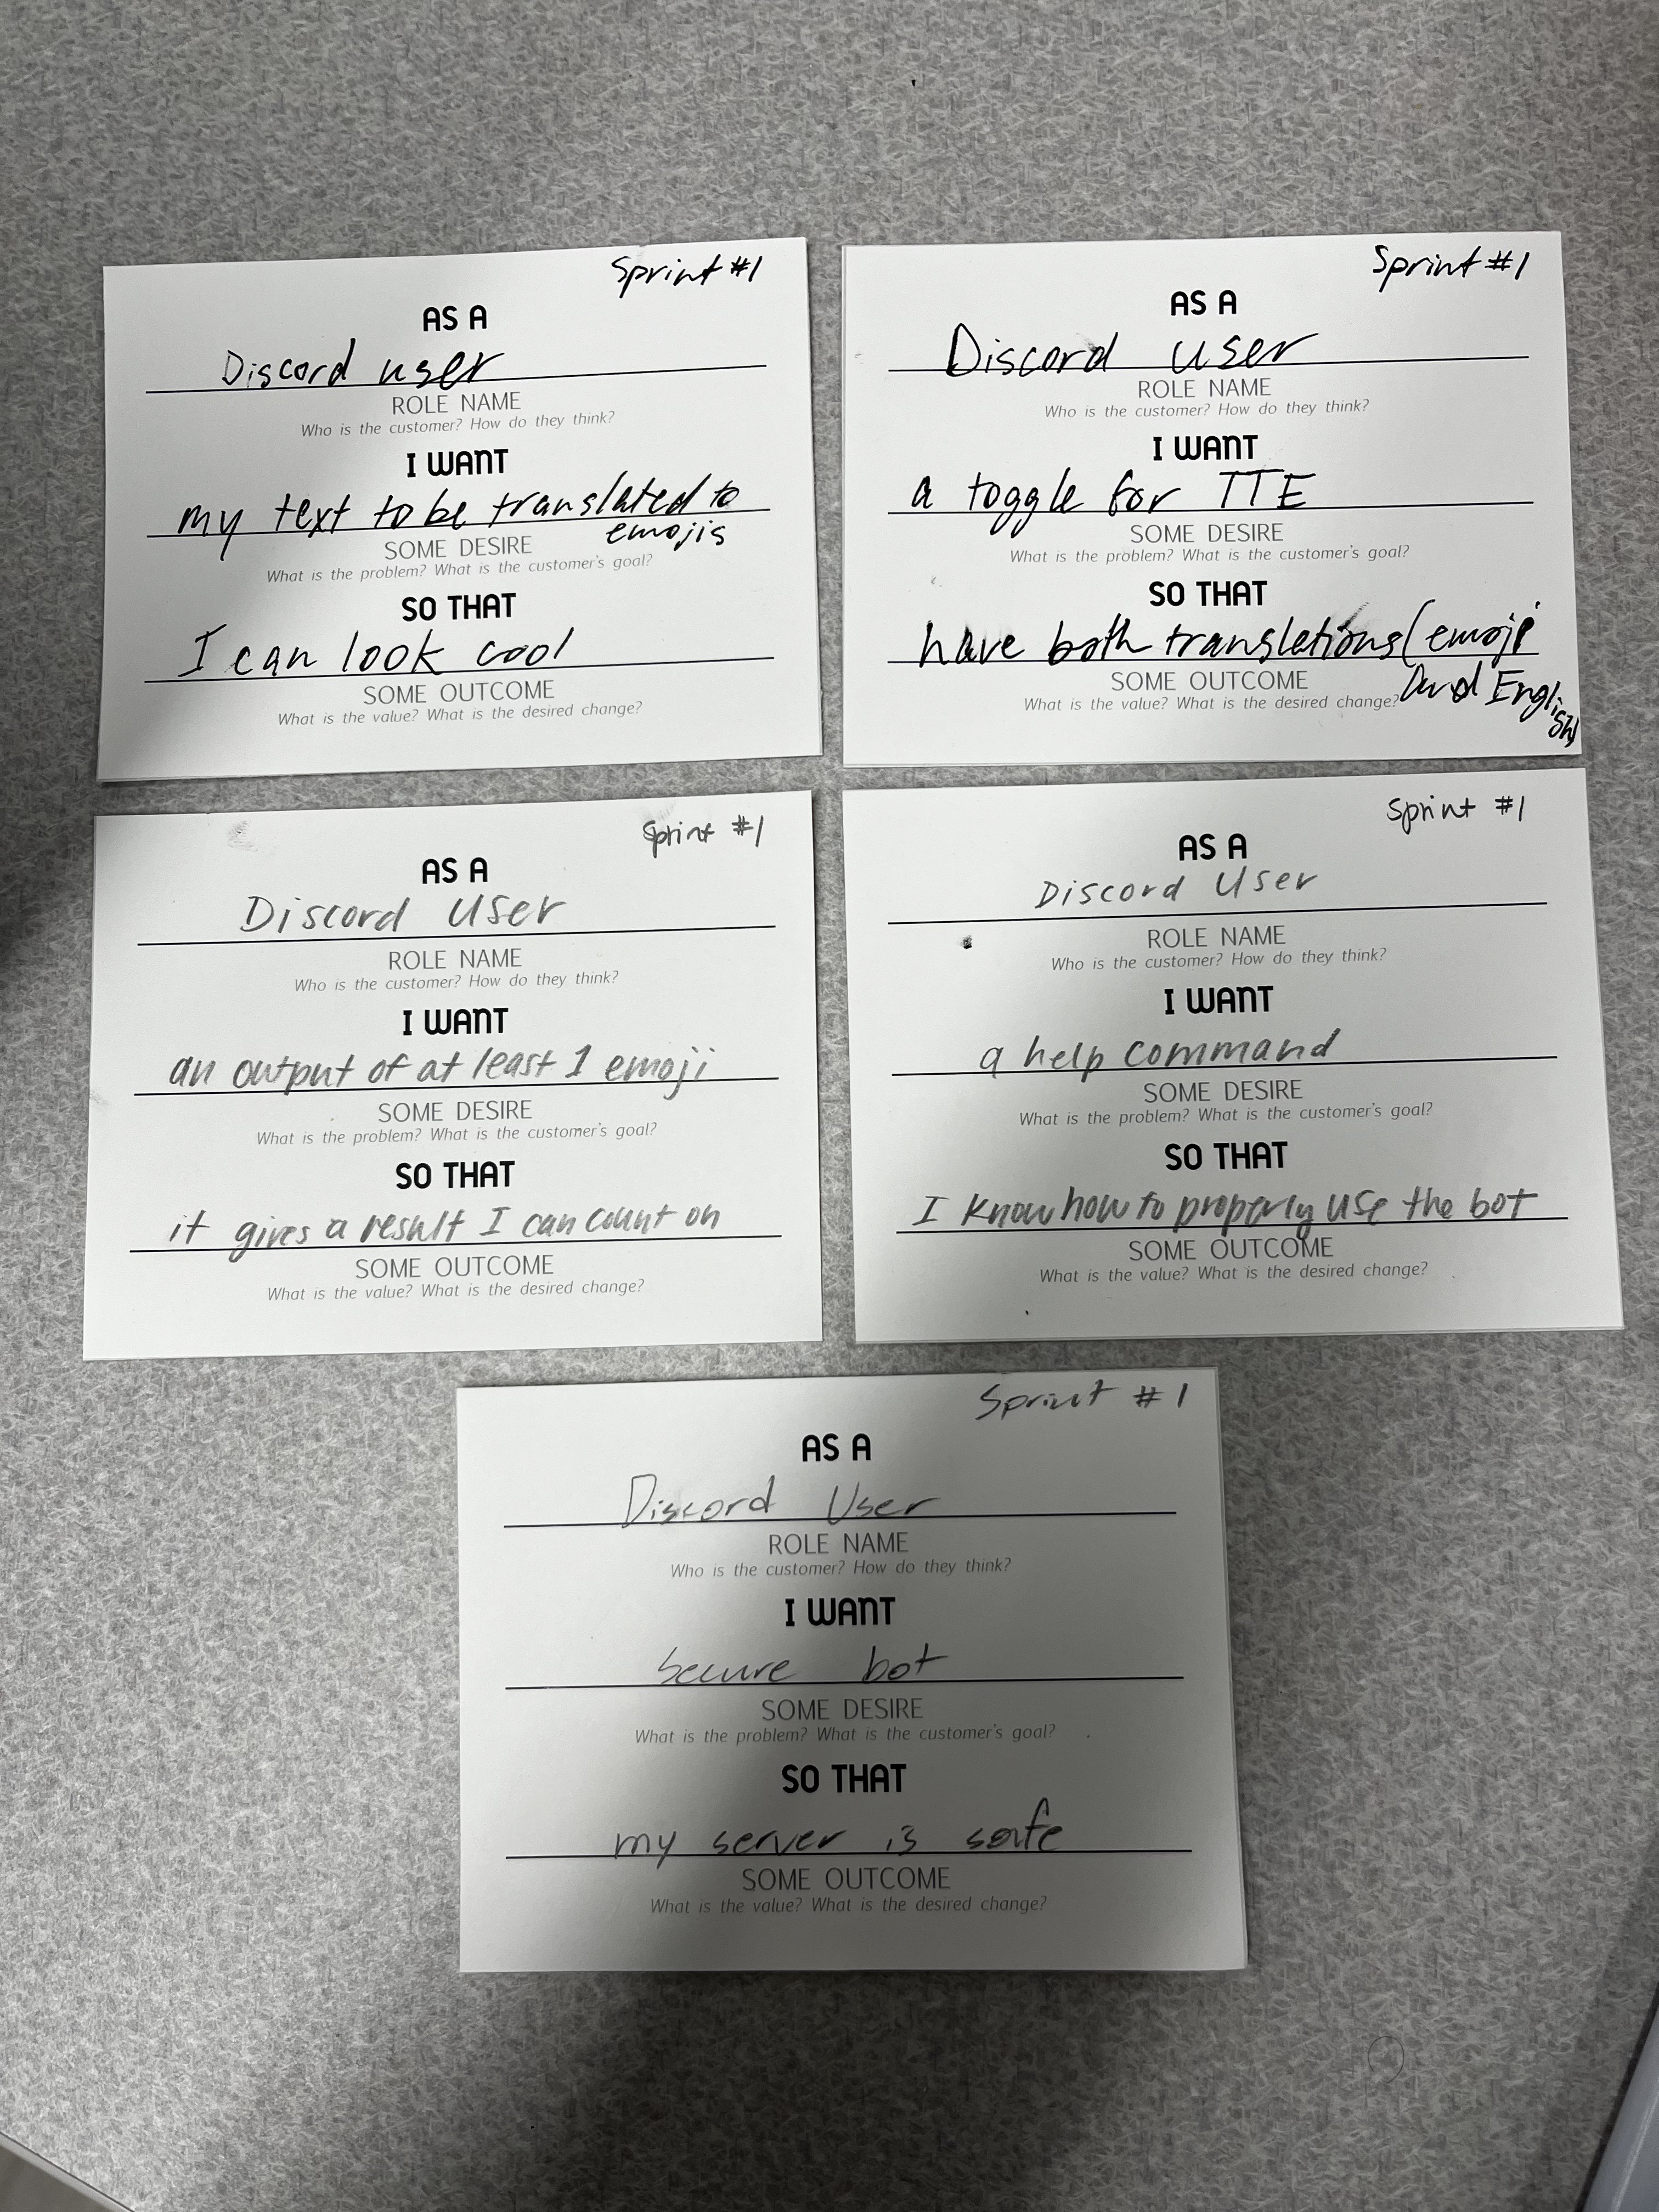 Sprint #1
AS A
Discord user
ROLE NAME
Who is the customer? How do they think?
I WANT
my text to be translated to
emojis
SOME DESIRE
What is the problem? What is the customer's goal?
SO THAT
I can look cool
SOME OUTCOME
What is the value? What is the desired change?
Sprint #1
AS A
Discord user
ROLE NAME
Who is the customer? How do they think?
I WANT
a toggle for TTE
SOME DESIRE
What is the problem? What is the customer's goal?
SO THAT
have both translations (emoji
and English)
SOME OUTCOME
What is the value? What is the desired change?
Sprint #1
AS A
Discord User
ROLE NAME
Who is the customer? How do they think?
I WANT
an output of at least 1 emoji
SOME DESIRE
What is the problem? What is the customer's goal?
SO THAT
it gives a result I can count on
SOME OUTCOME
What is the value? What is the desired change?
Sprint #1
AS A
Discord User
ROLE NAME
Who is the customer? How do they think?
I WANT
a help command
SOME DESIRE
What is the problem? What is the customer's goal?
SO THAT
I know how to properly use the bot
SOME OUTCOME
What is the value? What is the desired change?
Sprint #1
AS A
Discord User
ROLE NAME
Who is the customer? How do they think?
I WANT
secure bot
SOME DESIRE
What is the problem? What is the customer's goal?
SO THAT
my server is safe
SOME OUTCOME
What is the value? What is the desired change?